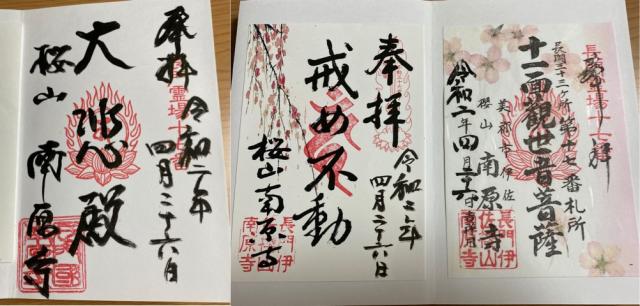 奉拝 令和二年
四月二十六日
大悲殿
桜山 南原寺
奉拝 令和二年
四月二十六日
戒め不動
桜山南原寺
長門伊佐
南原寺
長門三十三ヶ所 第十七番札所
十一面観世音菩薩
美祢市伊佐
桜山 南原寺
令和二年四月二十六日
長門伊
佐桜山
南原寺